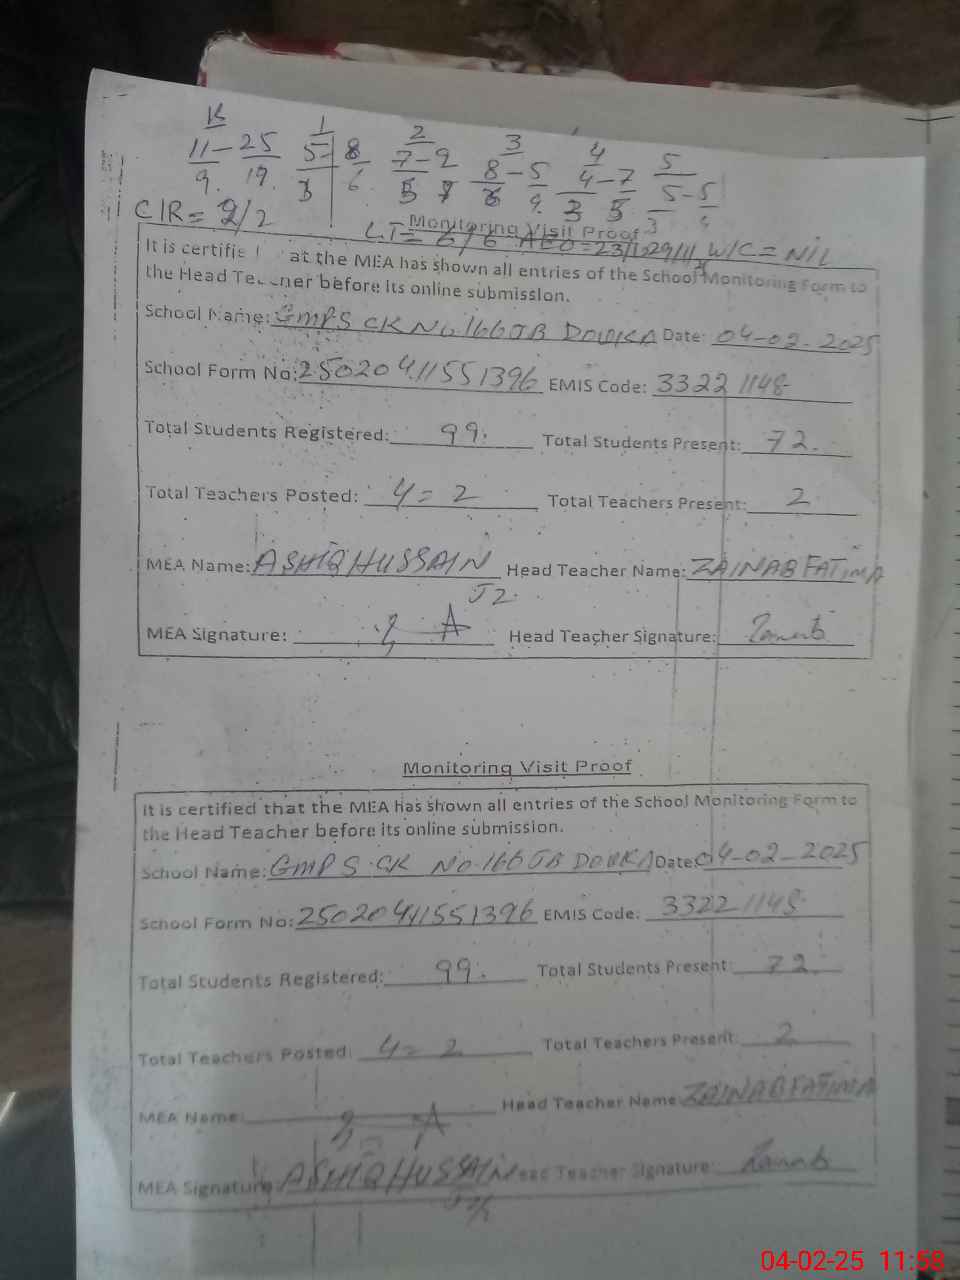 K 1 2 3 4 5
11-25 5-8 7-9 8-5 4-7 5-5
9. 19. 3 6. 5 7 6 4. 3 5 3 4
CIR= 2/2
Monitoring Visit Proof
LT= 6/6 W/C= NIL
It is certified at the MEA has shown all entries of the School Monitoring Form to
the Head Teacher before its online submission.
School Name: GMPS CK No.166JB DOUKA Date: 04-02-2025
School Form No: 2502041155 1396 EMIS Code: 33221148
Total Students Registered: 99. Total Students Present: 72.
Total Teachers Posted: 4= 2 Total Teachers Present: 2
MEA Name: ASHIQ HUSSAIN Head Teacher Name: ZAINAB FATIMA
J2.
MEA Signature: Head Teacher Signature: Zainab
Monitoring Visit Proof
It is certified that the MEA has shown all entries of the School Monitoring Form to
the Head Teacher before its online submission.
School Name: GMPS CK No.166JB DOUKA Date: 04-02-2025
School Form No: 25020411551396 EMIS Code: 33221148
Total Students Registered: 99. Total Students Present: 72.
Total Teachers Posted: 4= 2 Total Teachers Present: 2
MEA Name: Head Teacher Name: ZAINAB FATIMA
MEA Signature: ASHIQ HUSSAIN Head Teacher Signature: Zainab
04-02-25 11:58